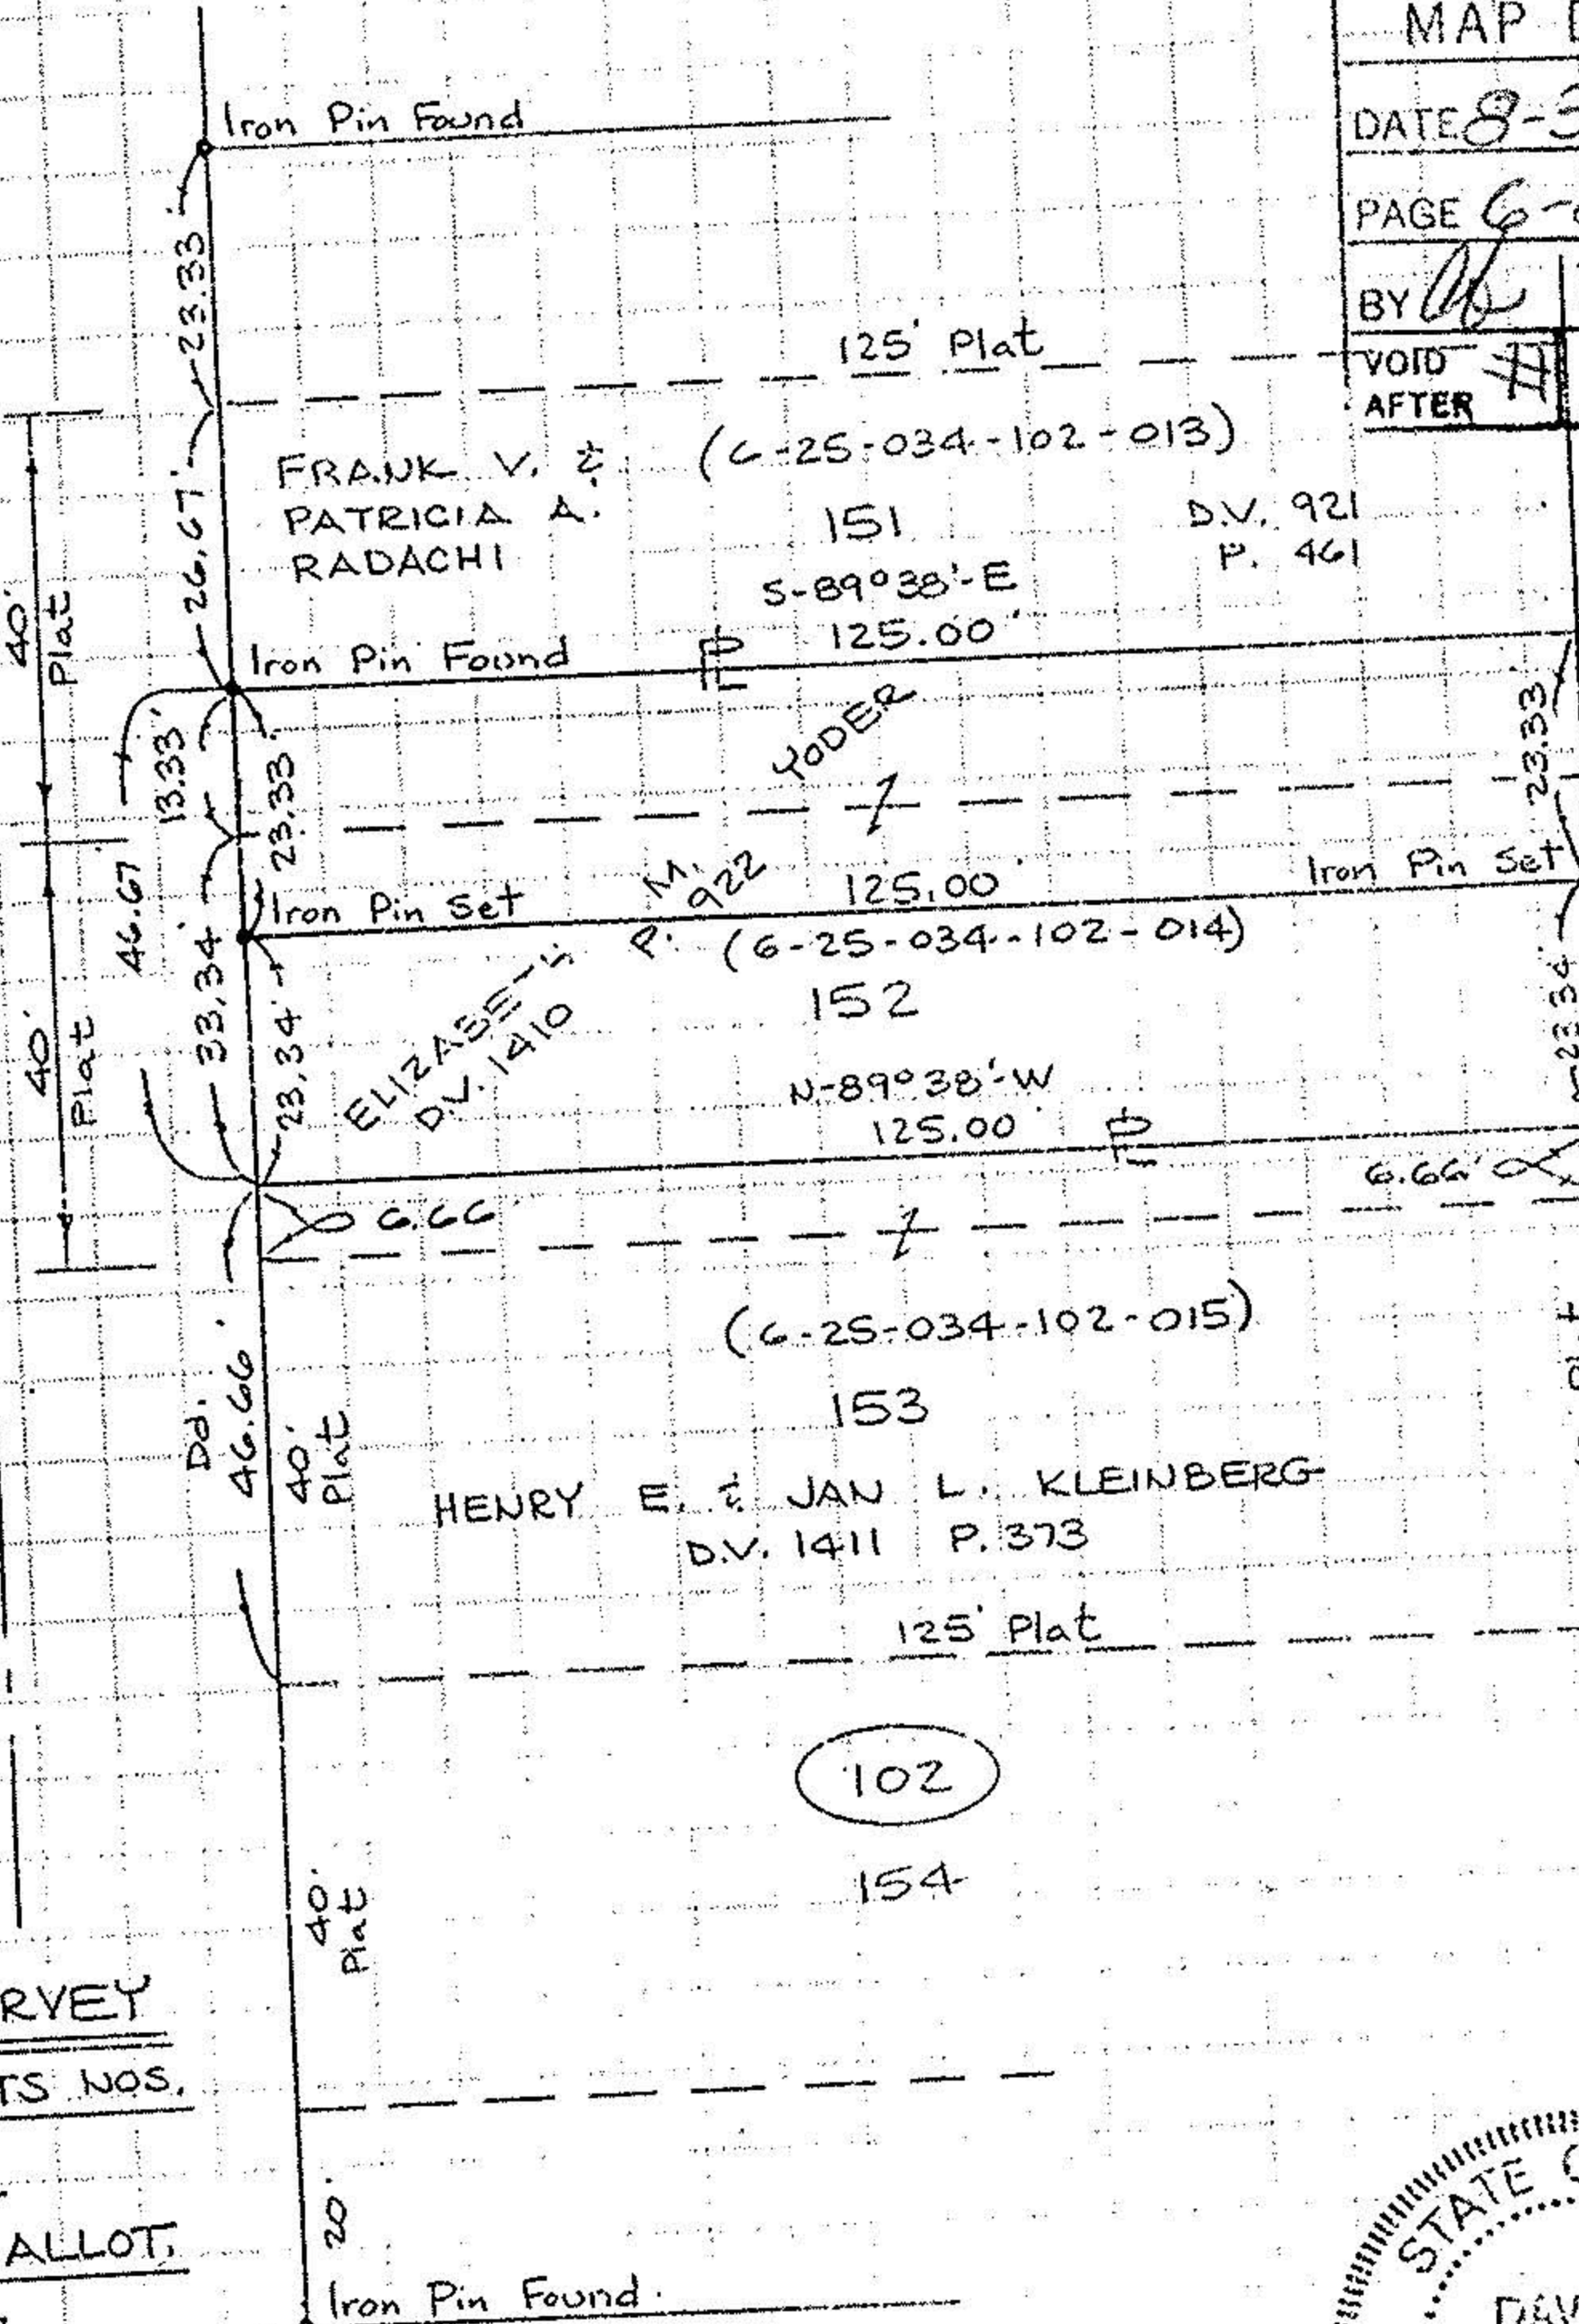 MAP
DATE 8-
PAGE 6-
BY
VOID
AFTER
Iron Pin Found
23.33'
125' Plat
FRANK V. &
PATRICIA A.
RADACHI
(6-25-034-102-013)
151
D.V. 921
P. 461
S-89°38'-E
125.00'
26.67'
40'
Plat
Iron Pin Found
PL
13.33'
23.33'
23.33
YODER
M.
46.67'
Iron Pin Set
922
P.
125.00
Iron Pin Set
(6-25-034-102-014)
152
33.34'
23.34'
23.34'
D.V. 1410
40'
Plat
N-89°38'-W
125.00'
PL
6.66'
6.66'
(6-25-034-102-015)
153
Dd.
46.66'
40'
Plat
HENRY E. & JAN L. KLEINBERG
D.V. 1411 P. 373
125' Plat
102
154
40'
Plat
RVEY
TS NOS.
20'
ALLOT.
Iron Pin Found
STATE
DAV